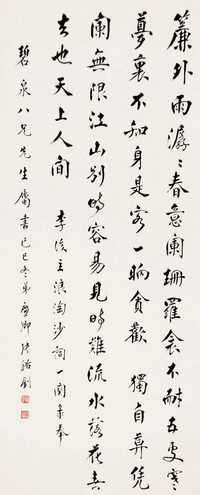 簾外雨潺〻春意闌珊羅衾不耐五更寒
夢裏不知身是客一晌貪歡 獨自莫凭
闌無限江山別時容易見時難流水落花春
去也天上人間 李後主浪淘沙詞一闋录奉
碧泉八兄先生屬書己巳冬弟